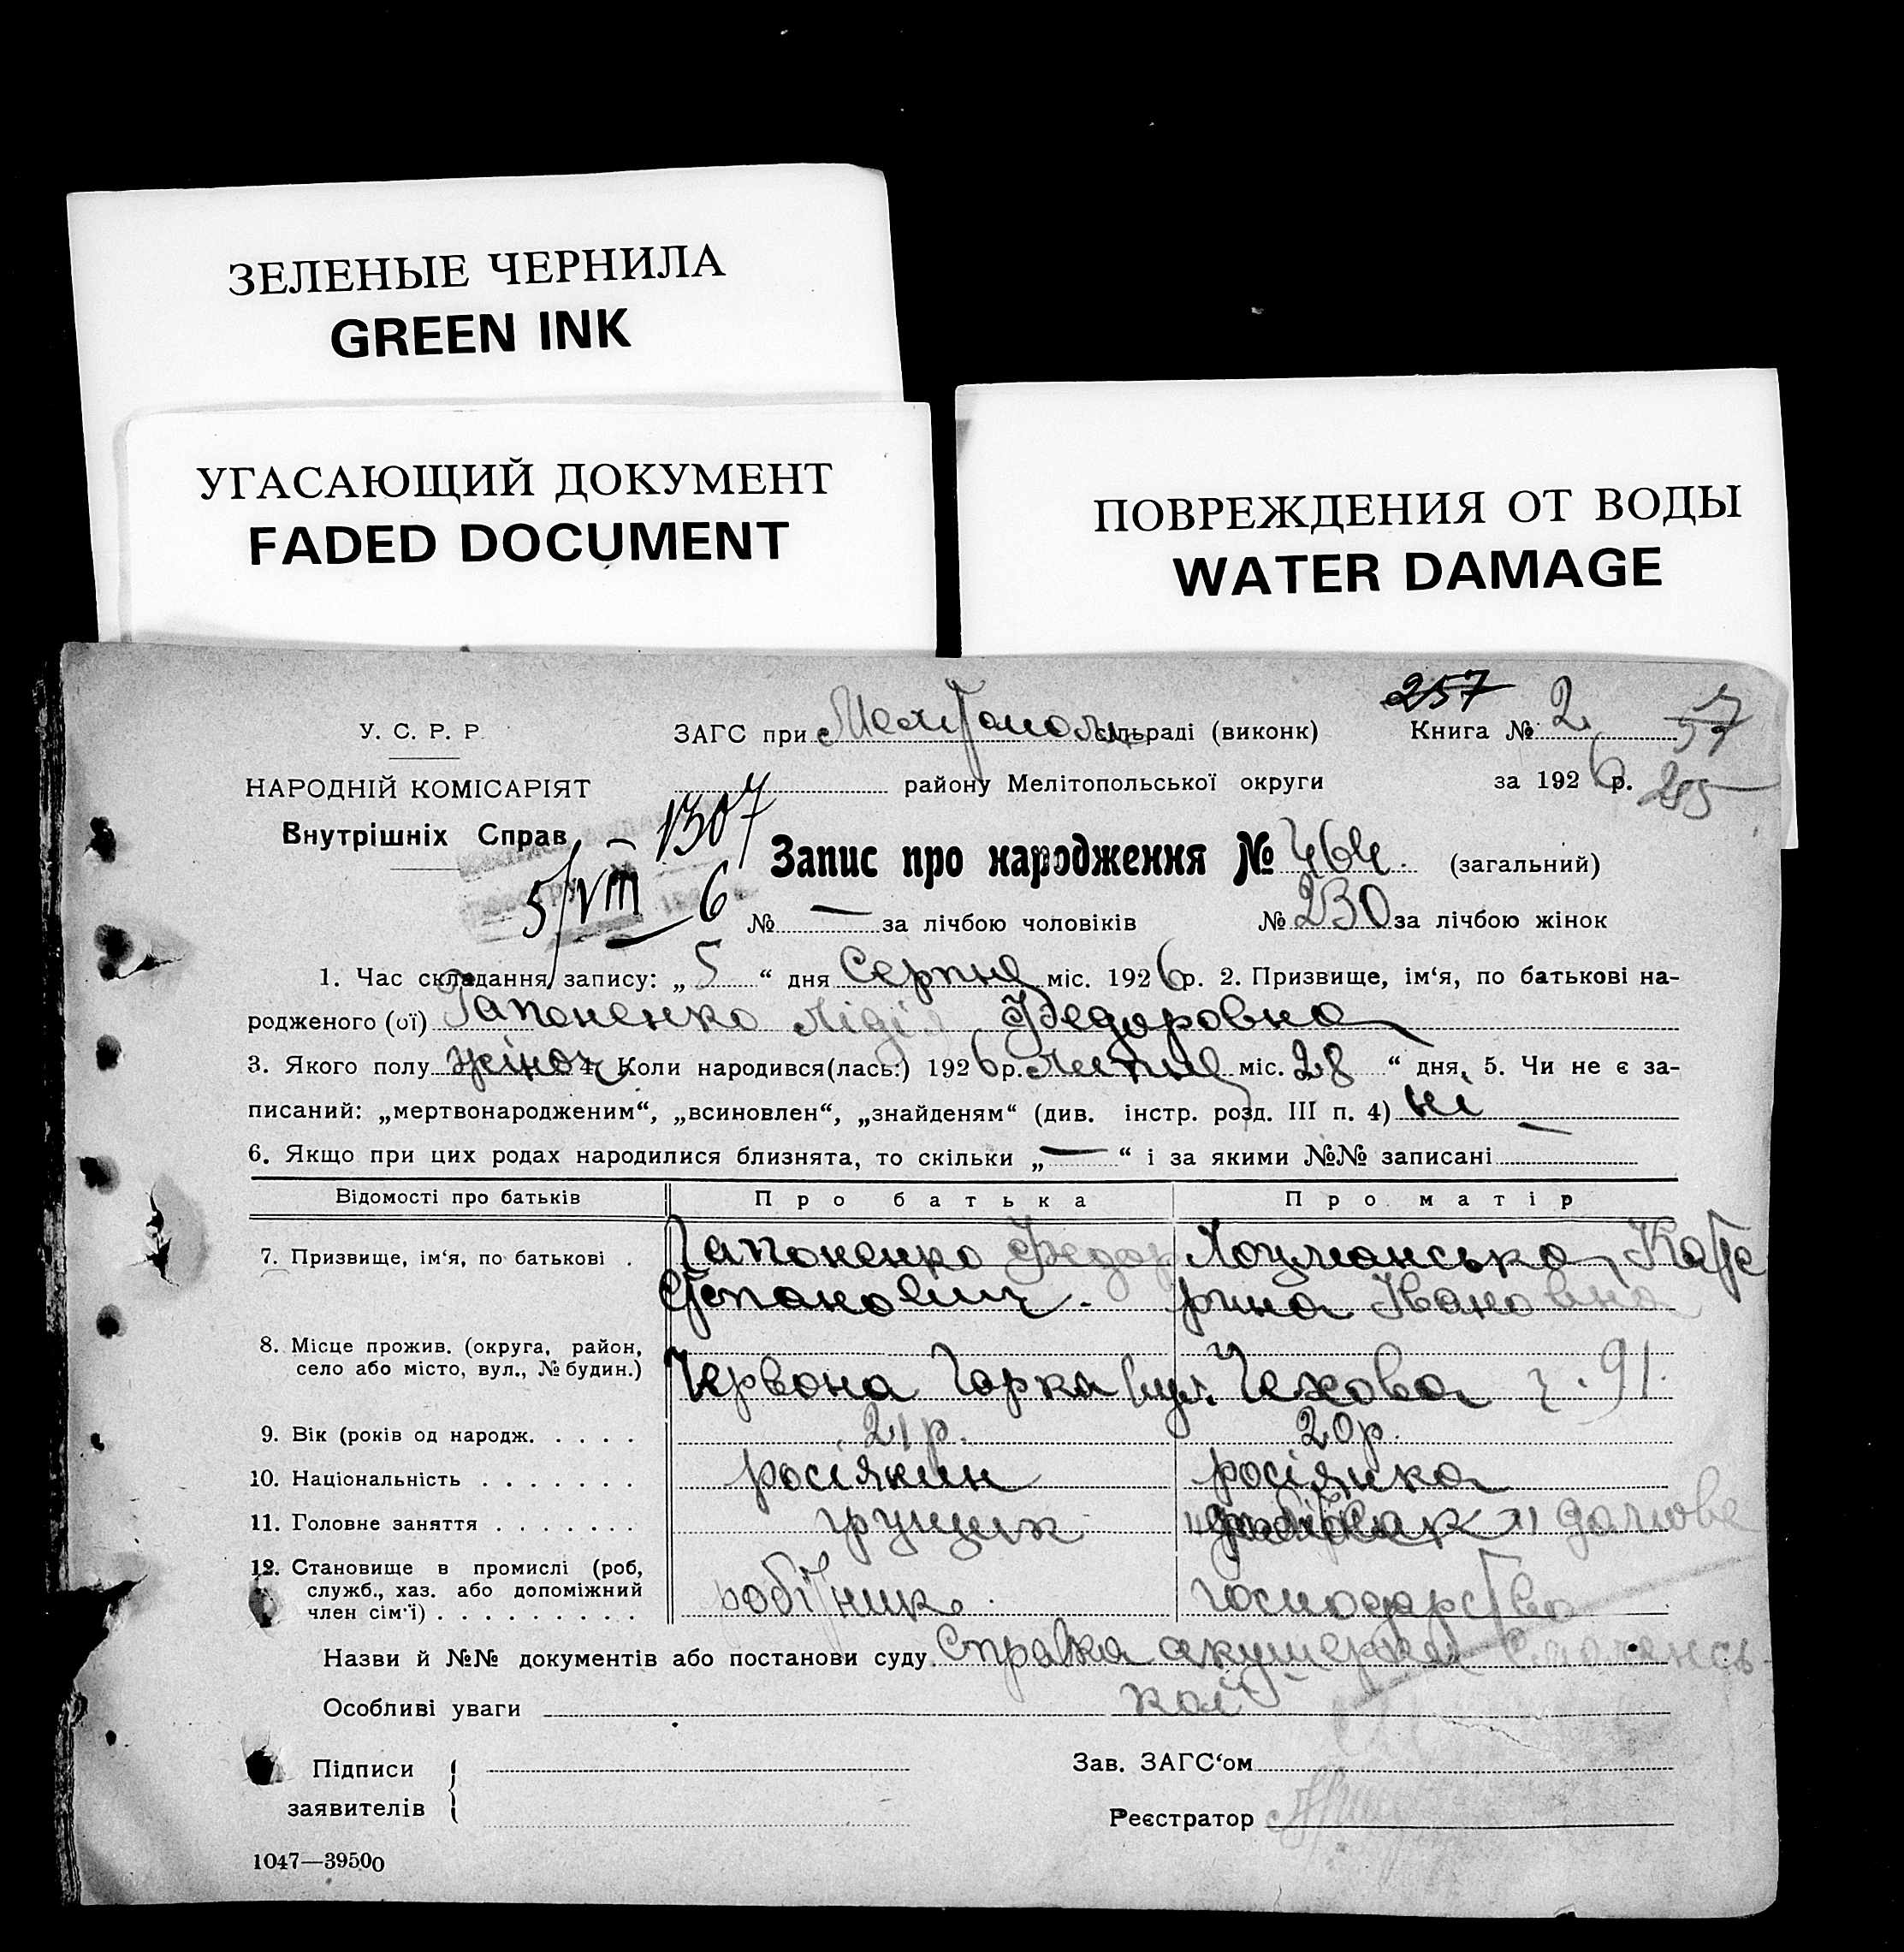 ЗЕЛЕНЫЕ ЧЕРНИЛА
GREEN INK
УГАСАЮЩИЙ ДОКУМЕНТ
FADED DOCUMENT
ПОВРЕЖДЕНИЯ ОТ ВОДЫ
WATER DAMAGE
257
У. С. Р. Р.
ЗАГС при сільраді (виконк)
Книга № 2
НАРОДНІЙ КОМІСАРІЯТ
району Мелітопольської округи
за 1926 р.
205
Внутрішніх Справ
1307
5/VIII – 6
Запис про народження № 464. (загальний)
№ — за лічбою чоловіків № 230 за лічбою жінок
1. Час складання запису: „ 5 “ дня Серпня міс. 1926 р. 2. Призвище, ім‘я, по батькові на-
родженого (ої) Гапоненко Лідія Федоровна
3. Якого полу жіноч 4. Коли народився(лась:) 1926 р. Липня міс. 28 “ дня, 5. Чи не є за-
писаний: „мертвонародженим“, „всиновлен“, „знайденям“ (див. інстр. розд. III п. 4) ні —
6. Якщо при цих родах народилися близнята, то скільки „ — “ і за якими №№ записані
Відомості про батьків Про батька Про матір
7. Призвище, ім‘я, по батькові . Гапоненко Федор Лоцманська Кате
Степанович. рина Івановна
8. Місце прожив. (округа, район,
село або місто, вул., № будин.) Червона Горка вул. Чехова ч. 91.
9. Вік (років од народж. . . . . 21 р. 20 р.
10. Національність . . . . . . . росіянин росіянка
11. Головне заняття . . . . . . . грущик домове
12. Становище в промислі (роб,
служб., хаз. або допоміжний
член сім‘ї) . . . . . . . . . робітник господарство
Назви й №№ документів або постанови суду Справка акушерки Смоленсь-
кої
Особливі уваги
Підписи
заявителів
Зав. ЗАГС‘ом
Реєстратор
1047—39500